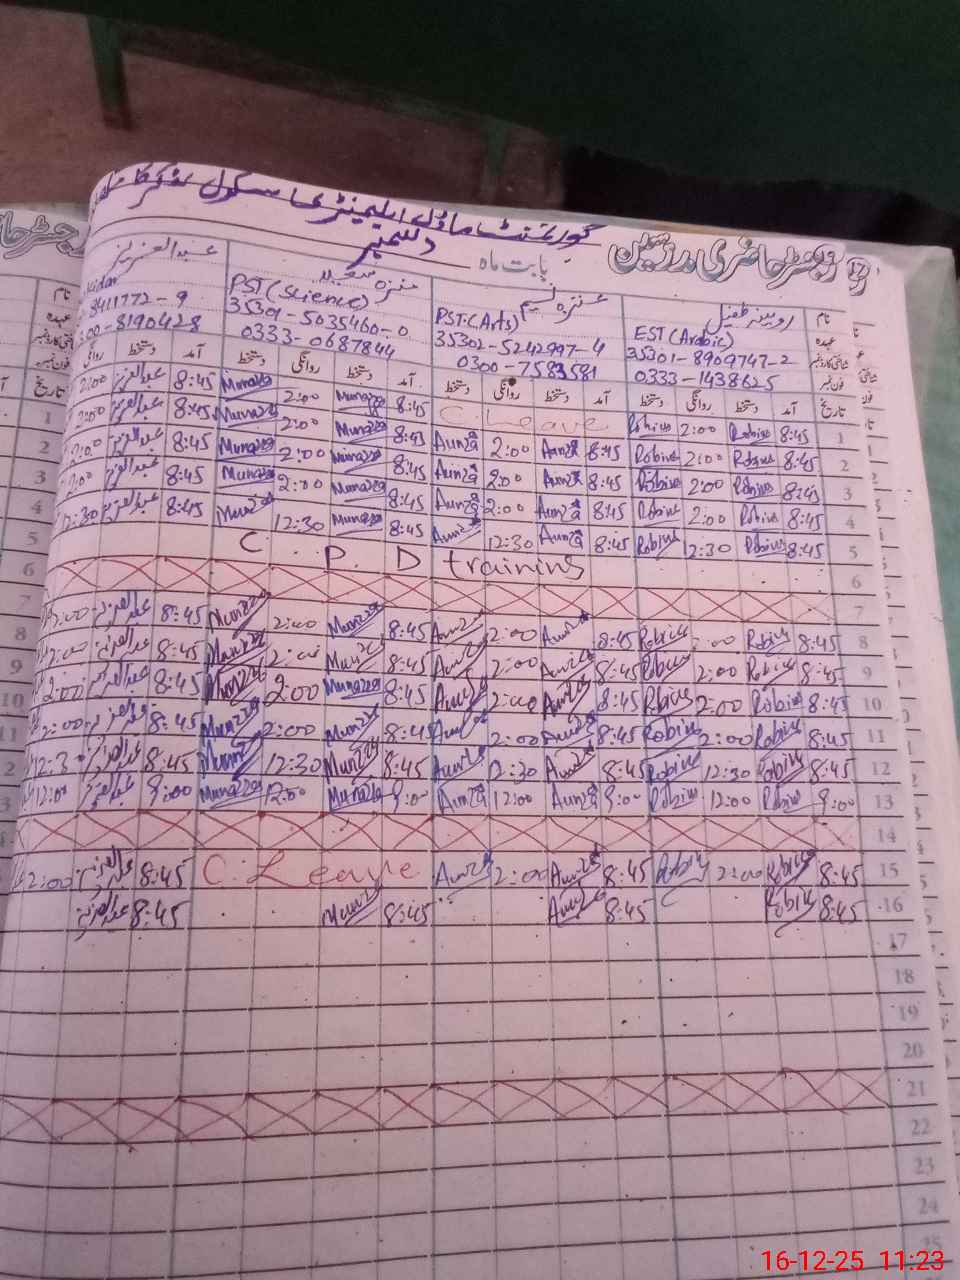 گورنمنٹ ماڈل ایلیمنٹری سکول
رجسٹر حاضری مدرسین بابت ماہ دسمبر
نام روبینہ طفیل عنزہ نسیم منزہ سعید عبدالعزیز
عہدہ EST (Arabic) PST (Arts) PST (Science)
35301-8909747-2 35302-5242997-4 35301-5035460-0 8411772-9
فون نمبر 0333-1438625 0300-7583581 0333-0687844 00-8190428
تاریخ آمد دستخط روانگی دستخط آمد دستخط روانگی دستخط آمد دستخط روانگی دستخط آمد دستخط روانگی
1 8:45 Robina 2:00 Robina C. Leave 8:45 Munazza 2:00 Munazza 8:45 عبدالعزیز 2:00
2 8:45 Robina 2:00 Robina 8:45 Aunza 2:00 Aunza 8:45 Munazza 2:00 Munazza 8:45 عبدالعزیز 2:00
3 8:45 Robina 2:00 Robina 8:45 Aunza 2:00 Aunza 8:45 Munazza 2:00 Munazza 8:45 عبدالعزیز 2:00
4 8:45 Robina 2:00 Robina 8:45 Aunza 2:00 Aunza 8:45 Munazza 2:00 Munazza 8:45 عبدالعزیز 2:00
5 8:45 Robina 12:30 Robina 8:45 Aunza 12:30 Aunza 8:45 Munazza 12:30 Munazza 8:45 عبدالعزیز 12:30
6 C P D training
7
8 8:45 Robina 2:00 Robina 8:45 Aunza 2:00 Aunza 8:45 Munazza 2:00 Munazza 8:45 عبدالعزیز 2:00
9 8:45 Robina 2:00 Robina 8:45 Aunza 2:00 Aunza 8:45 Munazza 2:00 Munazza 8:45 عبدالعزیز 2:00
10 8:45 Robina 2:00 Robina 8:45 Aunza 2:00 Aunza 8:45 Munazza 2:00 Munazza 8:45 عبدالعزیز 2:00
11 8:45 Robina 2:00 Robina 8:45 Aunza 2:00 Aunza 8:45 Munazza 2:00 Munazza 8:45 عبدالعزیز 2:00
12 8:45 Robina 12:30 Robina 8:45 Aunza 12:30 Aunza 8:45 Munazza 12:30 Munazza 8:45 عبدالعزیز 12:30
13 9:00 Robina 12:00 Robina 9:00 Aunza 12:00 Aunza 9:00 Munazza 12:00 Munazza 9:00 عبدالعزیز 12:00
14
15 8:45 Robina 2:00 Robina 8:45 Aunza 2:00 Aunza C. Leave 8:45 عبدالعزیز 2:00
16 8:45 Robina 8:45 Aunza 8:45 Munazza 8:45 عبدالعزیز
17
18
19
20
21
22
23
24
25
16-12-25 11:23